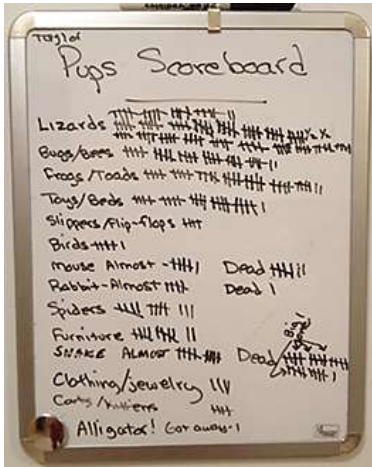 Taylor
Pups Scoreboard
Lizards
Bugs/Bees
Frogs/Toads
Toys/Beds
Slippers/Flip-flops
Birds
mouse Almost - Dead
Rabbit-Almost Dead 1
Spiders
Furniture
SNAKE ALMOST Dead
Clothing/jewelry
Cats/kittens
Alligator! Got away-1